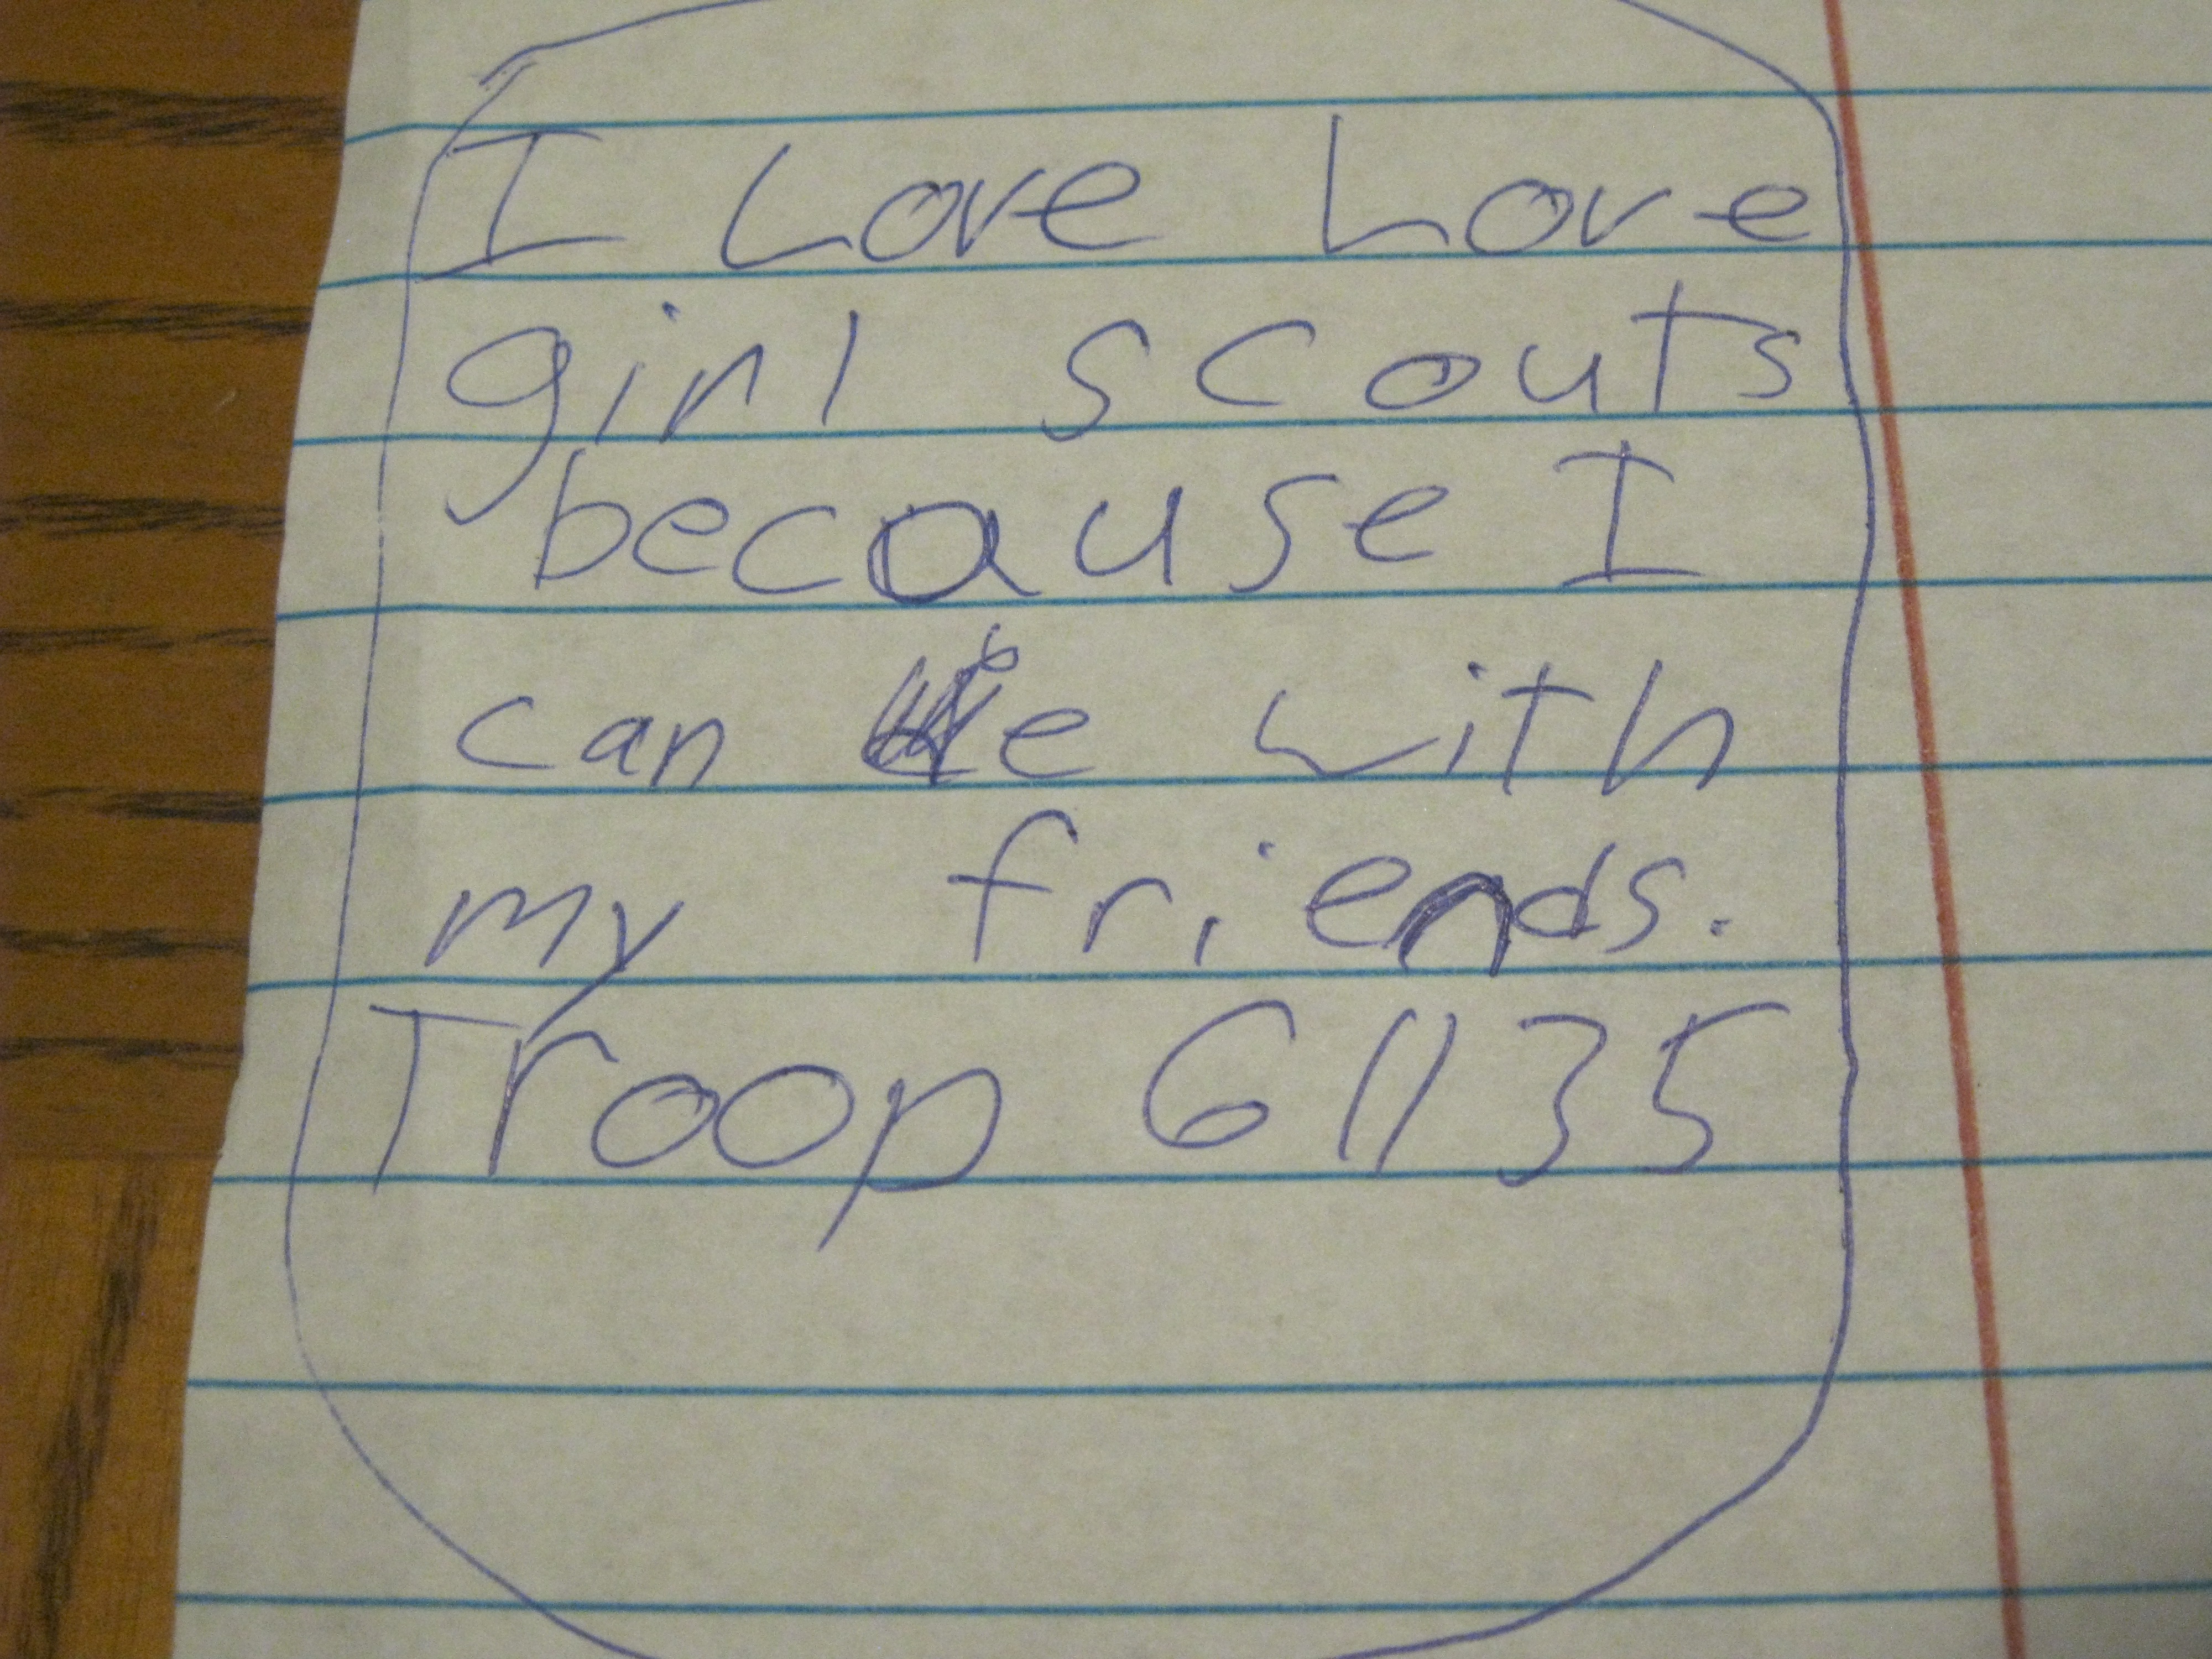 I Love Love
girl scouts
because I
can be with
my friends.
Troop 61135